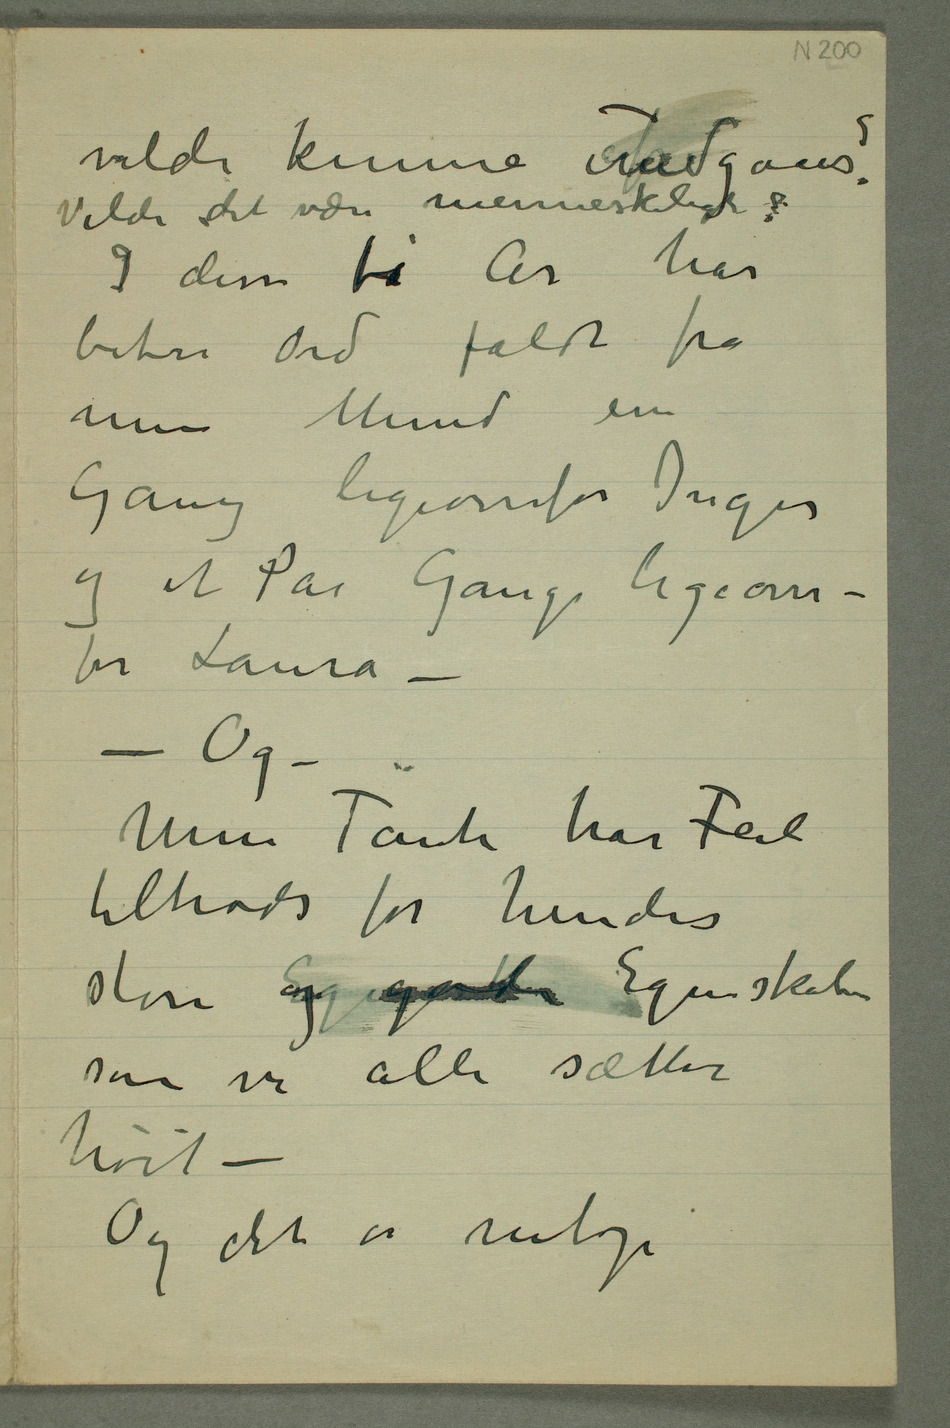 N 200
vilde kunne undgaaes?
Vilde det være menneskeligt?
I disse ti År har
bitre Ord faldt fra
min Mund en
Gang ligeoverfor Inger
og et Par Gange ligeover–
for Laura —
— Og –
Min Tante har Feil
tiltrods for hendes
store Egenskaber
som vi alle sætter
höit —
Og det er netop